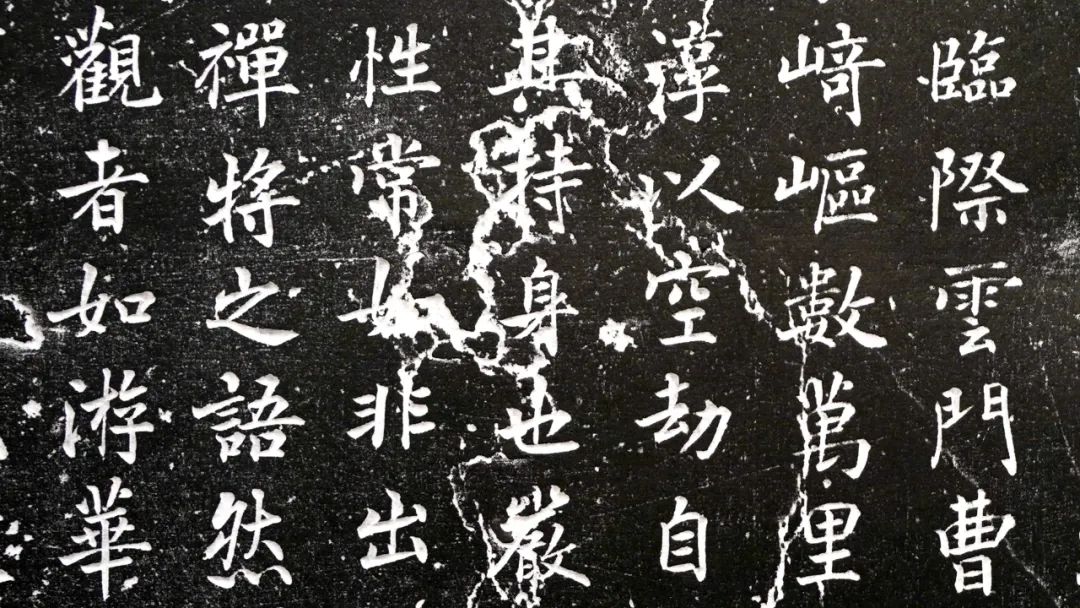 臨際雲門曹
崎嶇數萬里
淳以空劫自
其持身也嚴
性常如非出
禪將之語然
觀者如游華